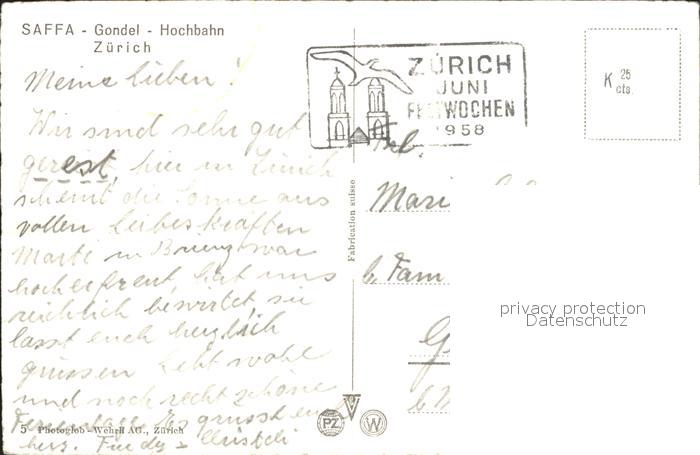 SAFFA - Gondel - Hochbahn
Zürich
Meine Lieben!
Wir sind sehr gut
gereist, hier in Zürich
scheint die Sonne aus
vollen Leibeskräften
Marti in Brienz war
hocherfreut, hat uns
reichlich bewirtet, sie
lasst euch herzlich
grüssen Lebt wohl
und noch recht schöne
Ferientage. Es grüsst euch
herz.
5 Photoglob - Wehrli AG., Zürich
ZÜRICH
JUNI
FESTWOCHEN
1958
K 25 cts.
Fabrication suisse
Frl.
Mari
b. Fam
privacy protection
Datenschutz
PZ
W